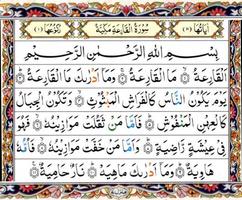 رُكُوْعُهَا (١) سُوْرَةُ الْقَارِعَةِ مَكِّيَّةٌ اٰيَاتُهَا
بِسْمِ اللهِ الرَّحْمٰنِ الرَّحِيْمِ
اَلْقَارِعَةُ مَا الْقَارِعَةُ وَمَاۤ اَدْرٰىكَ مَا الْقَارِعَةُ
يَوْمَ يَكُوْنُ النَّاسُ كَالْفَرَاشِ الْمَبْثُوْثِ وَتَكُوْنُ الْجِبَالُ
كَالْعِهْنِ الْمَنْفُوْشِ فَاَمَّا مَنْ ثَقُلَتْ مَوَازِيْنُهٗ فَهُوَ
فِيْ عِيْشَةٍ رَّاضِيَةٍ وَاَمَّا مَنْ خَفَّتْ مَوَازِيْنُهٗ فَاُمُّهٗ
هَاوِيَةٌ وَمَاۤ اَدْرٰىكَ مَاهِيَهْ نَارٌ حَامِيَةٌ